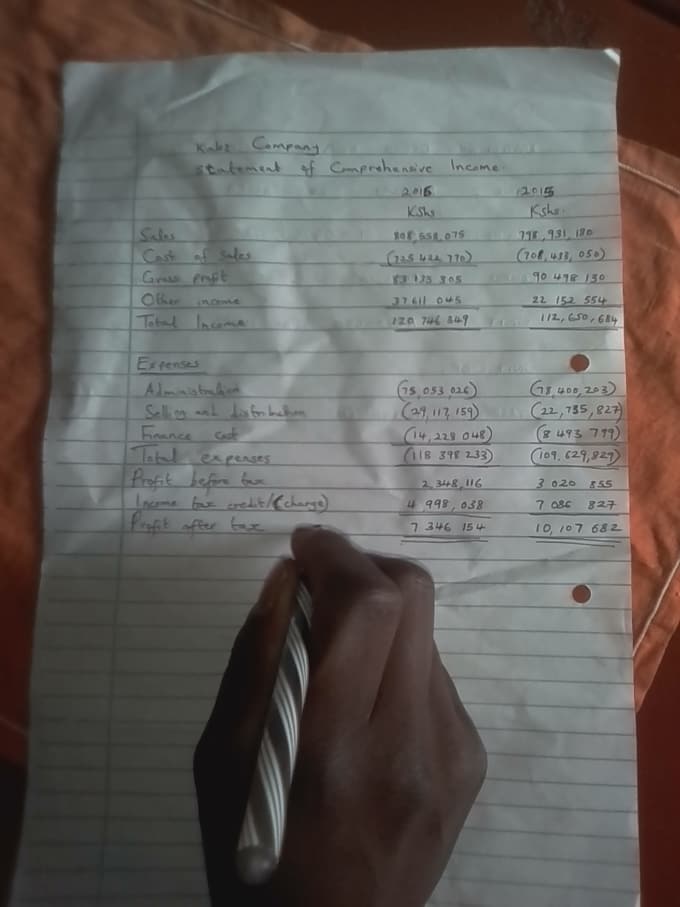 Kabz Company
Statement of Comprehensive Income
2016 2015
Kshs Kshs
Sales 808,558,075 798,931,180
Cost of Sales (725 422 770) (708,433,050)
Gross profit 83 135 305 90 498 130
Other income 37 611 045 22 152 554
Total Income 120 746 349 112,650,684
Expenses
Administration (75,053 026) (78,400,203)
Selling and distribution (29,117,159) (22,735,827)
Finance cost (14,228 048) (8 493 799)
Total expenses (118 398 233) (109,629,829)
Profit before tax 2,348,116 3 020 855
Income tax credit/(charge) 4,998,038 7 086 827
Profit after tax 7 346 154 10,107 682